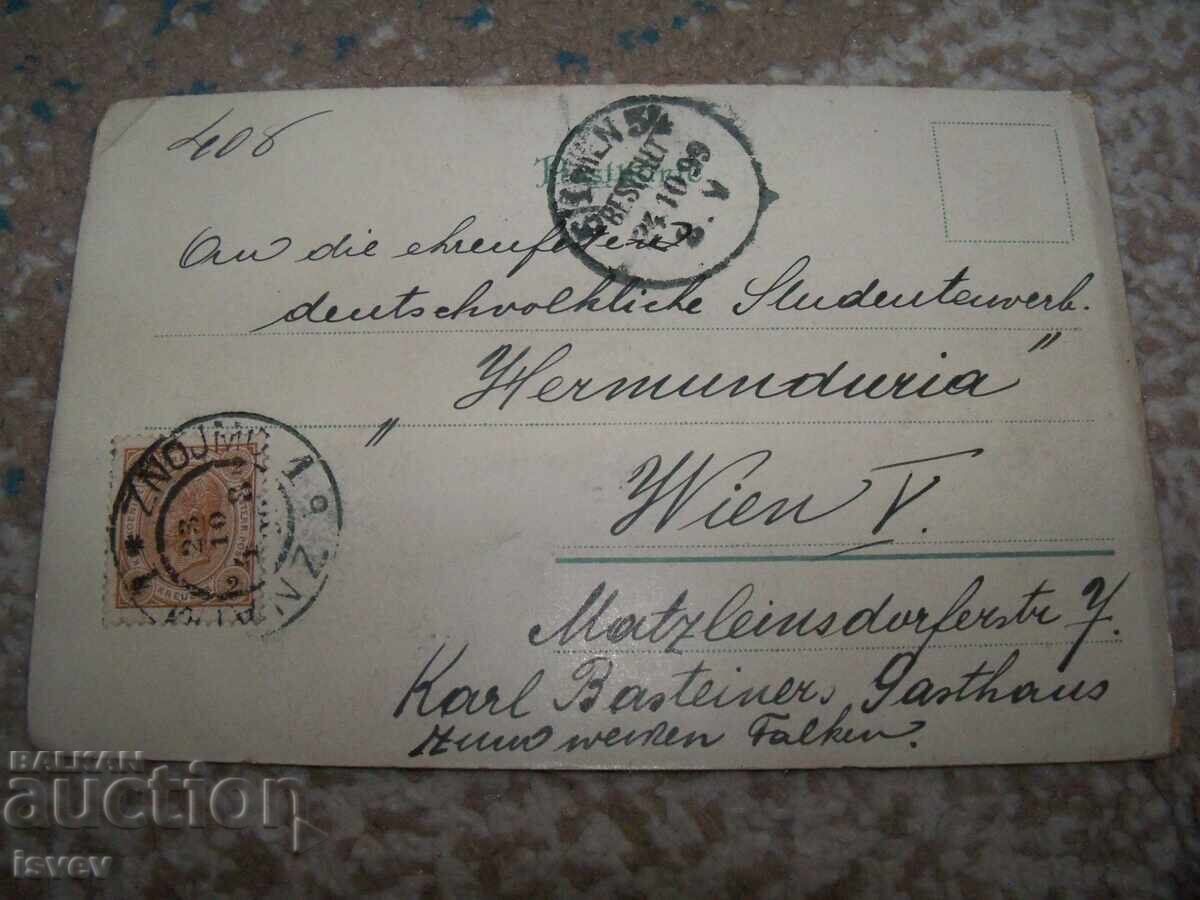 408
Postkarte
WIEN 5/4
BESTELLT
24.10.99
An die ehrenfesten
deutschvolkliche Studentenverb.
„Hermunduria"
Wien V.
Matzleinsdorferstr 7.
Karl Basteiners Gasthaus
zum weissen Falken.
* ZNOJMO 1 *
ZNAIM
23
10
2
KREUZER
BALKAN
auction
isvev